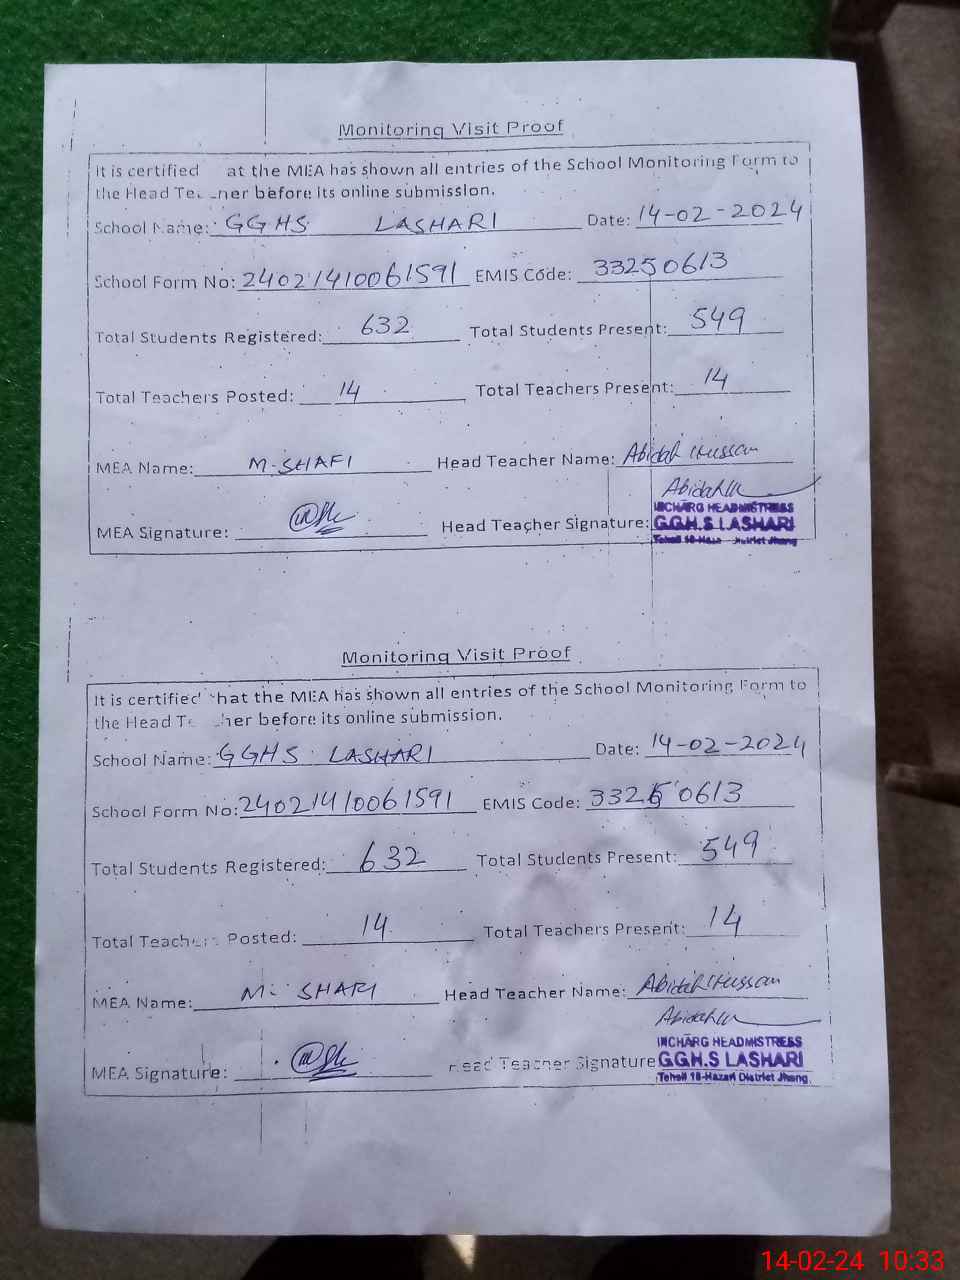 Monitoring Visit Proof
It is certified at the MEA has shown all entries of the School Monitoring Form to
the Head before its online submission.
School Name: GGHS LASHARI Date: 14-02-2024
School Form No: 24021410061591 EMIS Code: 33250613
Total Students Registered: 632 Total Students Present: 549
Total Teachers Posted: 14 Total Teachers Present: 14
MEA Name: M.SHAFI Head Teacher Name: Abidah Hussan
Abidah
MEA Signature: Head Teacher Signature:
INCHARG HEADMISTRESS
G.G.H.S LASHARI
Tehsil 18-Haza District Jhang
Monitoring Visit Proof
It is certified that the MEA has shown all entries of the School Monitoring Form to
the Head before its online submission.
School Name: GGHS LASHARI Date: 14-02-2024
School Form No: 24021410061591 EMIS Code: 33250613
Total Students Registered: 632 Total Students Present: 549
Total Teachers Posted: 14 Total Teachers Present: 14
MEA Name: M. SHAFI Head Teacher Name: Abidah Hussan
Abidah
MEA Signature: Head Teacher Signature
INCHARG HEADMISTRESS
G.G.H.S LASHARI
Tehsil 18-Hazari District Jhang
14-02-24 10:33